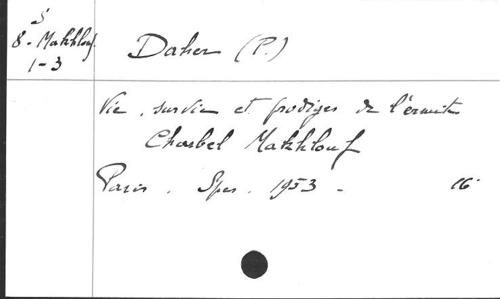 S
8 - Makhlouf
1-3
Daher (P.)
Vie, survie et prodiges de l'ermite
Charbel Makhlouf
Paris. Spes. 1953 - 16°